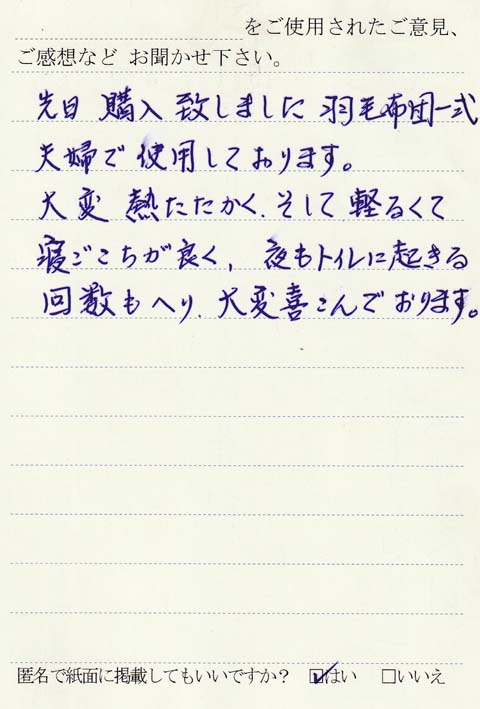 をご使用されたご意見、
ご感想など お聞かせ下さい。
先日 購入 致しました 羽毛布団一式
夫婦で 使用しております。
大変 熱たたかく、そして 軽るくて
寝ごこちが良く、夜もトイレに起きる
回数もへり、大変喜こんでおります。
匿名で紙面に掲載してもいいですか? ☑はい □いいえ